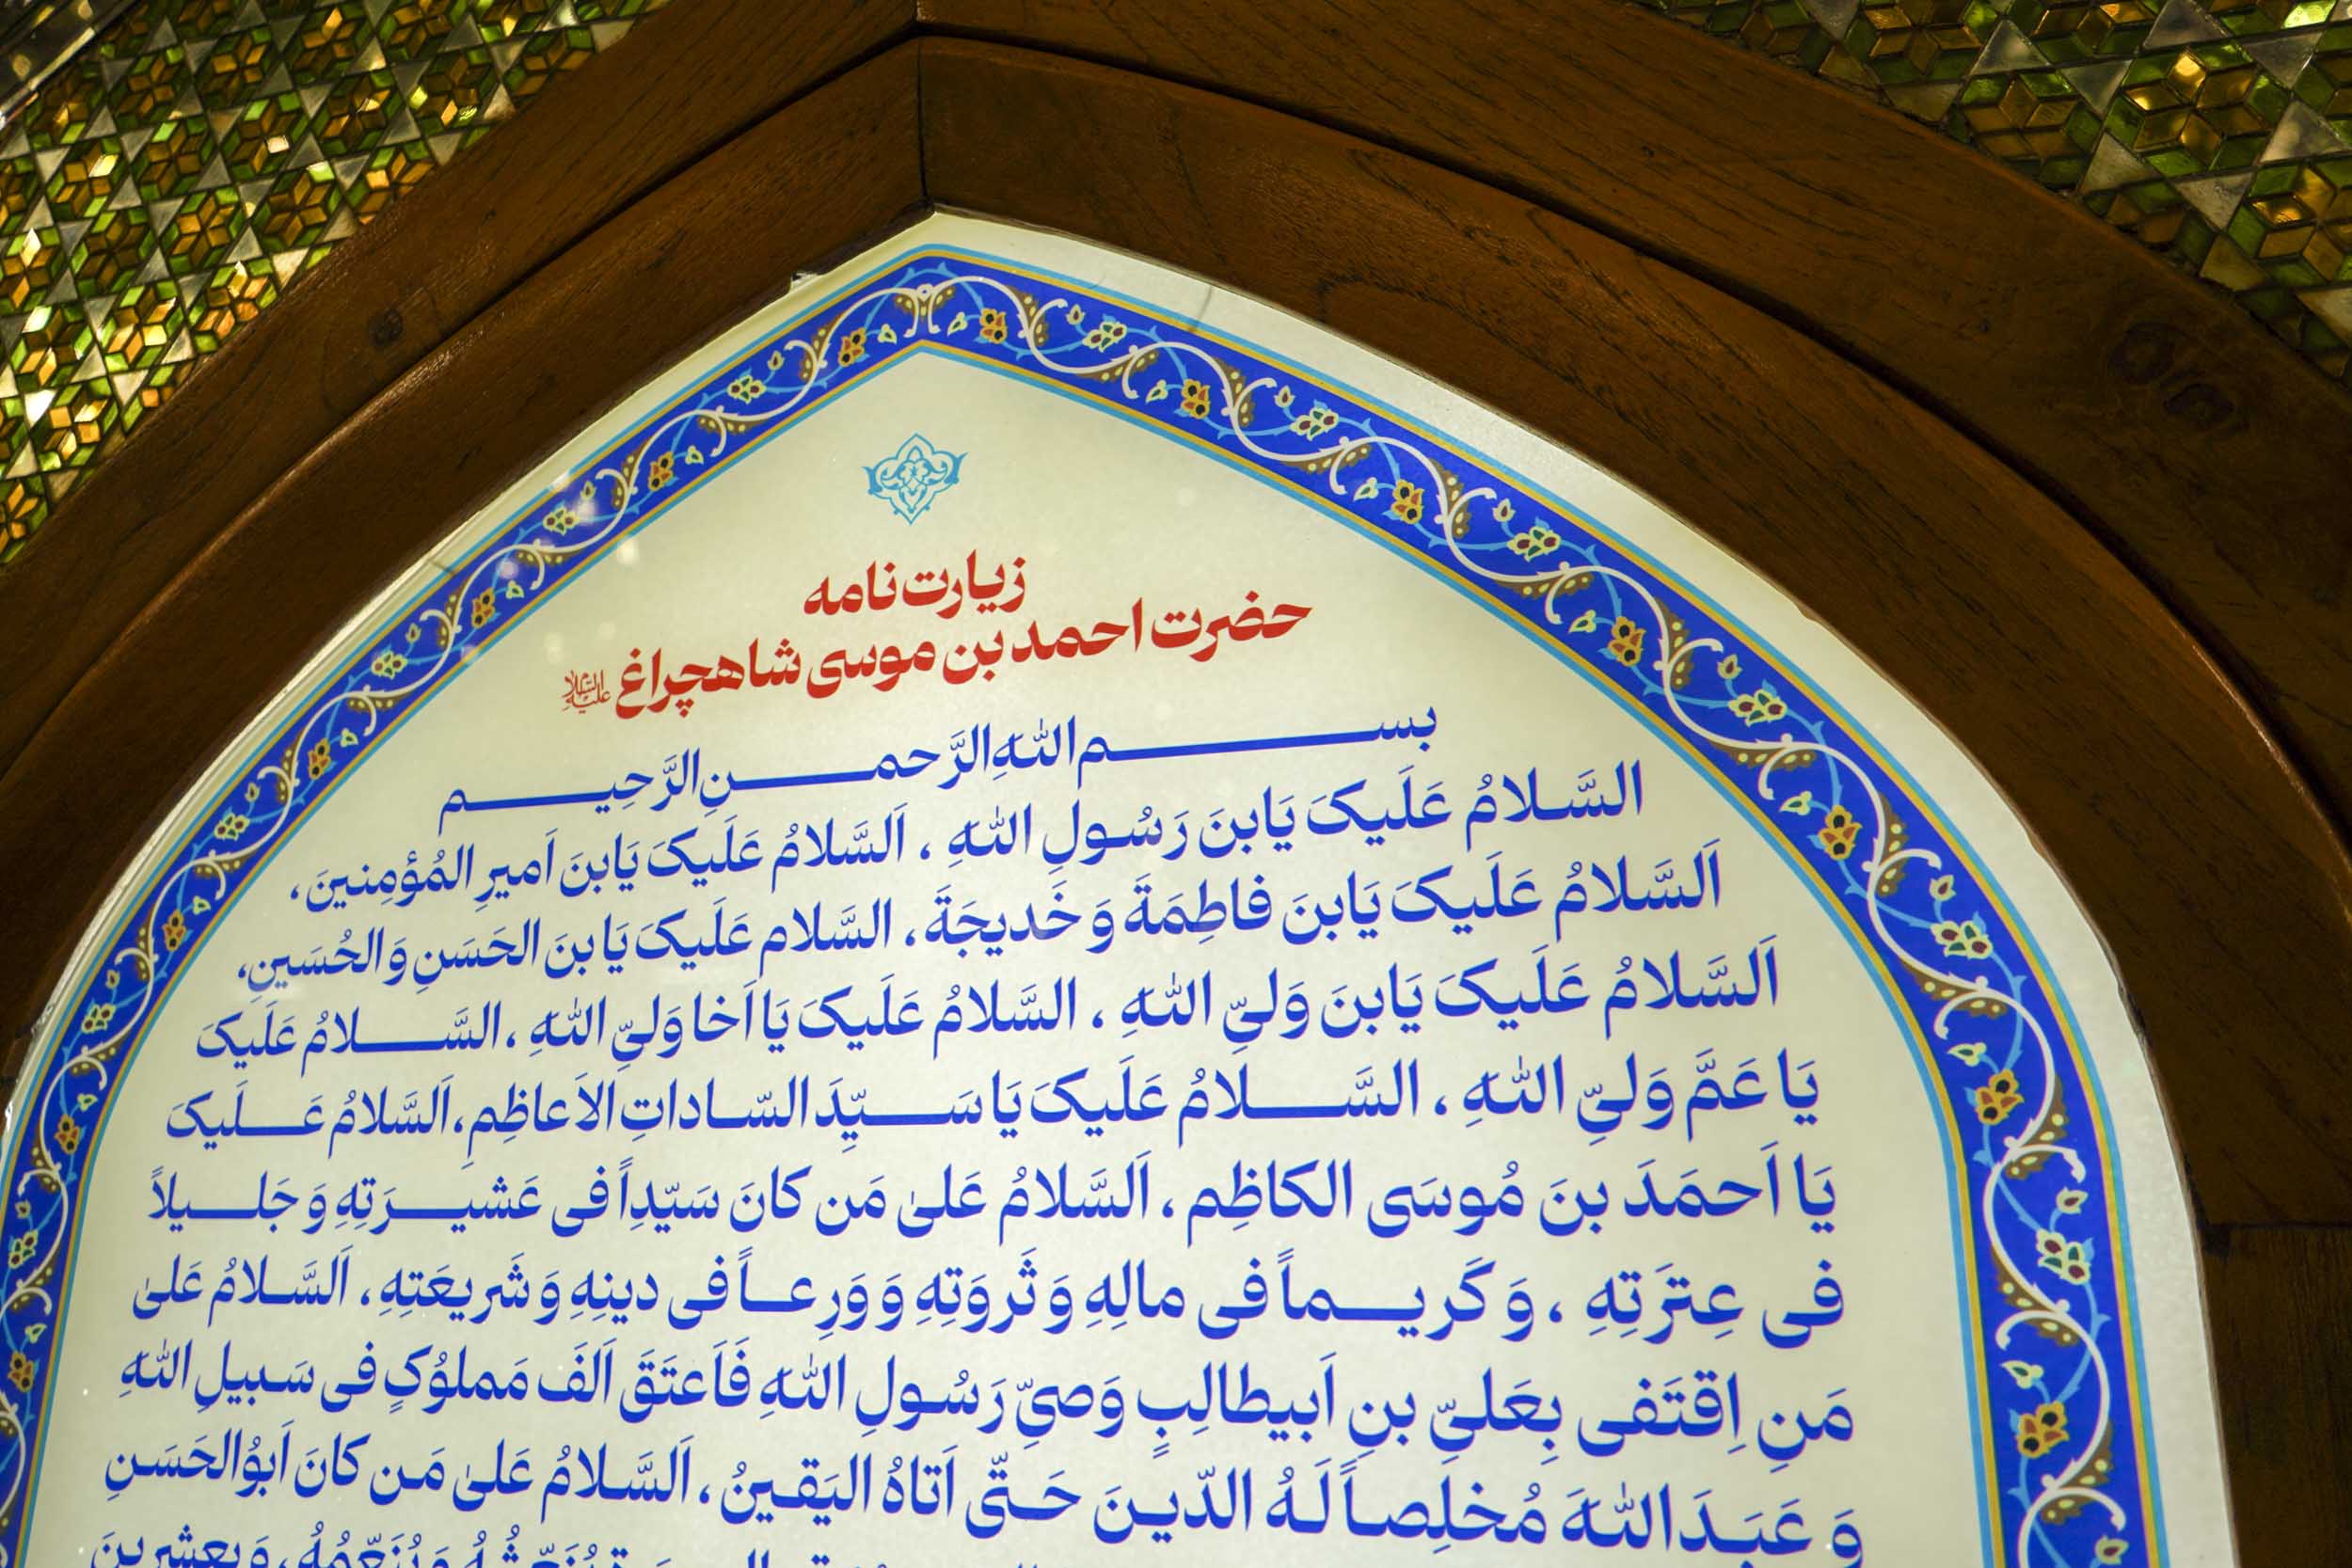 زیارت‌نامه
حضرت احمد بن موسی شاهچراغ علیه‌السلام
بسم اللهِ الرَّحمنِ الرَّحِیم
السَّلامُ عَلَیکَ یَابنَ رَسُولِ اللهِ ، اَلسَّلامُ عَلَیکَ یَابنَ اَمیرِ المُؤمِنینَ،
اَلسَّلامُ عَلَیکَ یَابنَ فاطِمَةَ وَ خَدیجَةَ، السَّلام عَلَیکَ یَا بنَ الحَسَنِ وَ الحُسَینِ،
اَلسَّلامُ عَلَیکَ یَابنَ وَلیِّ اللهِ ، السَّلامُ عَلَیکَ یَا اَخا وَلیِّ اللهِ ، السَّلامُ عَلَیکَ
یَا عَمَّ وَلیِّ اللهِ ، السَّلامُ عَلَیکَ یَا سَیِّدَ السّاداتِ الاَعاظِمِ، اَلسَّلامُ عَلَیکَ
یَا اَحمَدَ بنَ مُوسَی الکاظِم ، اَلسَّلامُ عَلیٰ مَن کانَ سَیّداً فی عَشیرَتِهِ وَ جَلیلاً
فی عِترَتِهِ ، وَ کَریماً فی مالِهِ وَ ثَروَتِهِ وَ وَرِعاً فی دینِهِ وَ شَریعَتِهِ، اَلسَّلامُ عَلیٰ
مَنِ اِقتَفی بِعَلیِّ بنِ اَبیطالِبٍ وَصیِّ رَسُولِ اللهِ فَاَعتَقَ اَلفَ مَملوُکٍ فی سَبیلِ اللهِ
وَ عَبَدَ اللهَ مُخلِصاً لَهُ الدّینَ حَتّی اَتاهُ الیَقینُ، اَلسَّلامُ عَلیٰ مَن کانَ اَبوُالحَسَنِ
وَ یُنَعِّمُهُ، وَ بِعِشرینَ